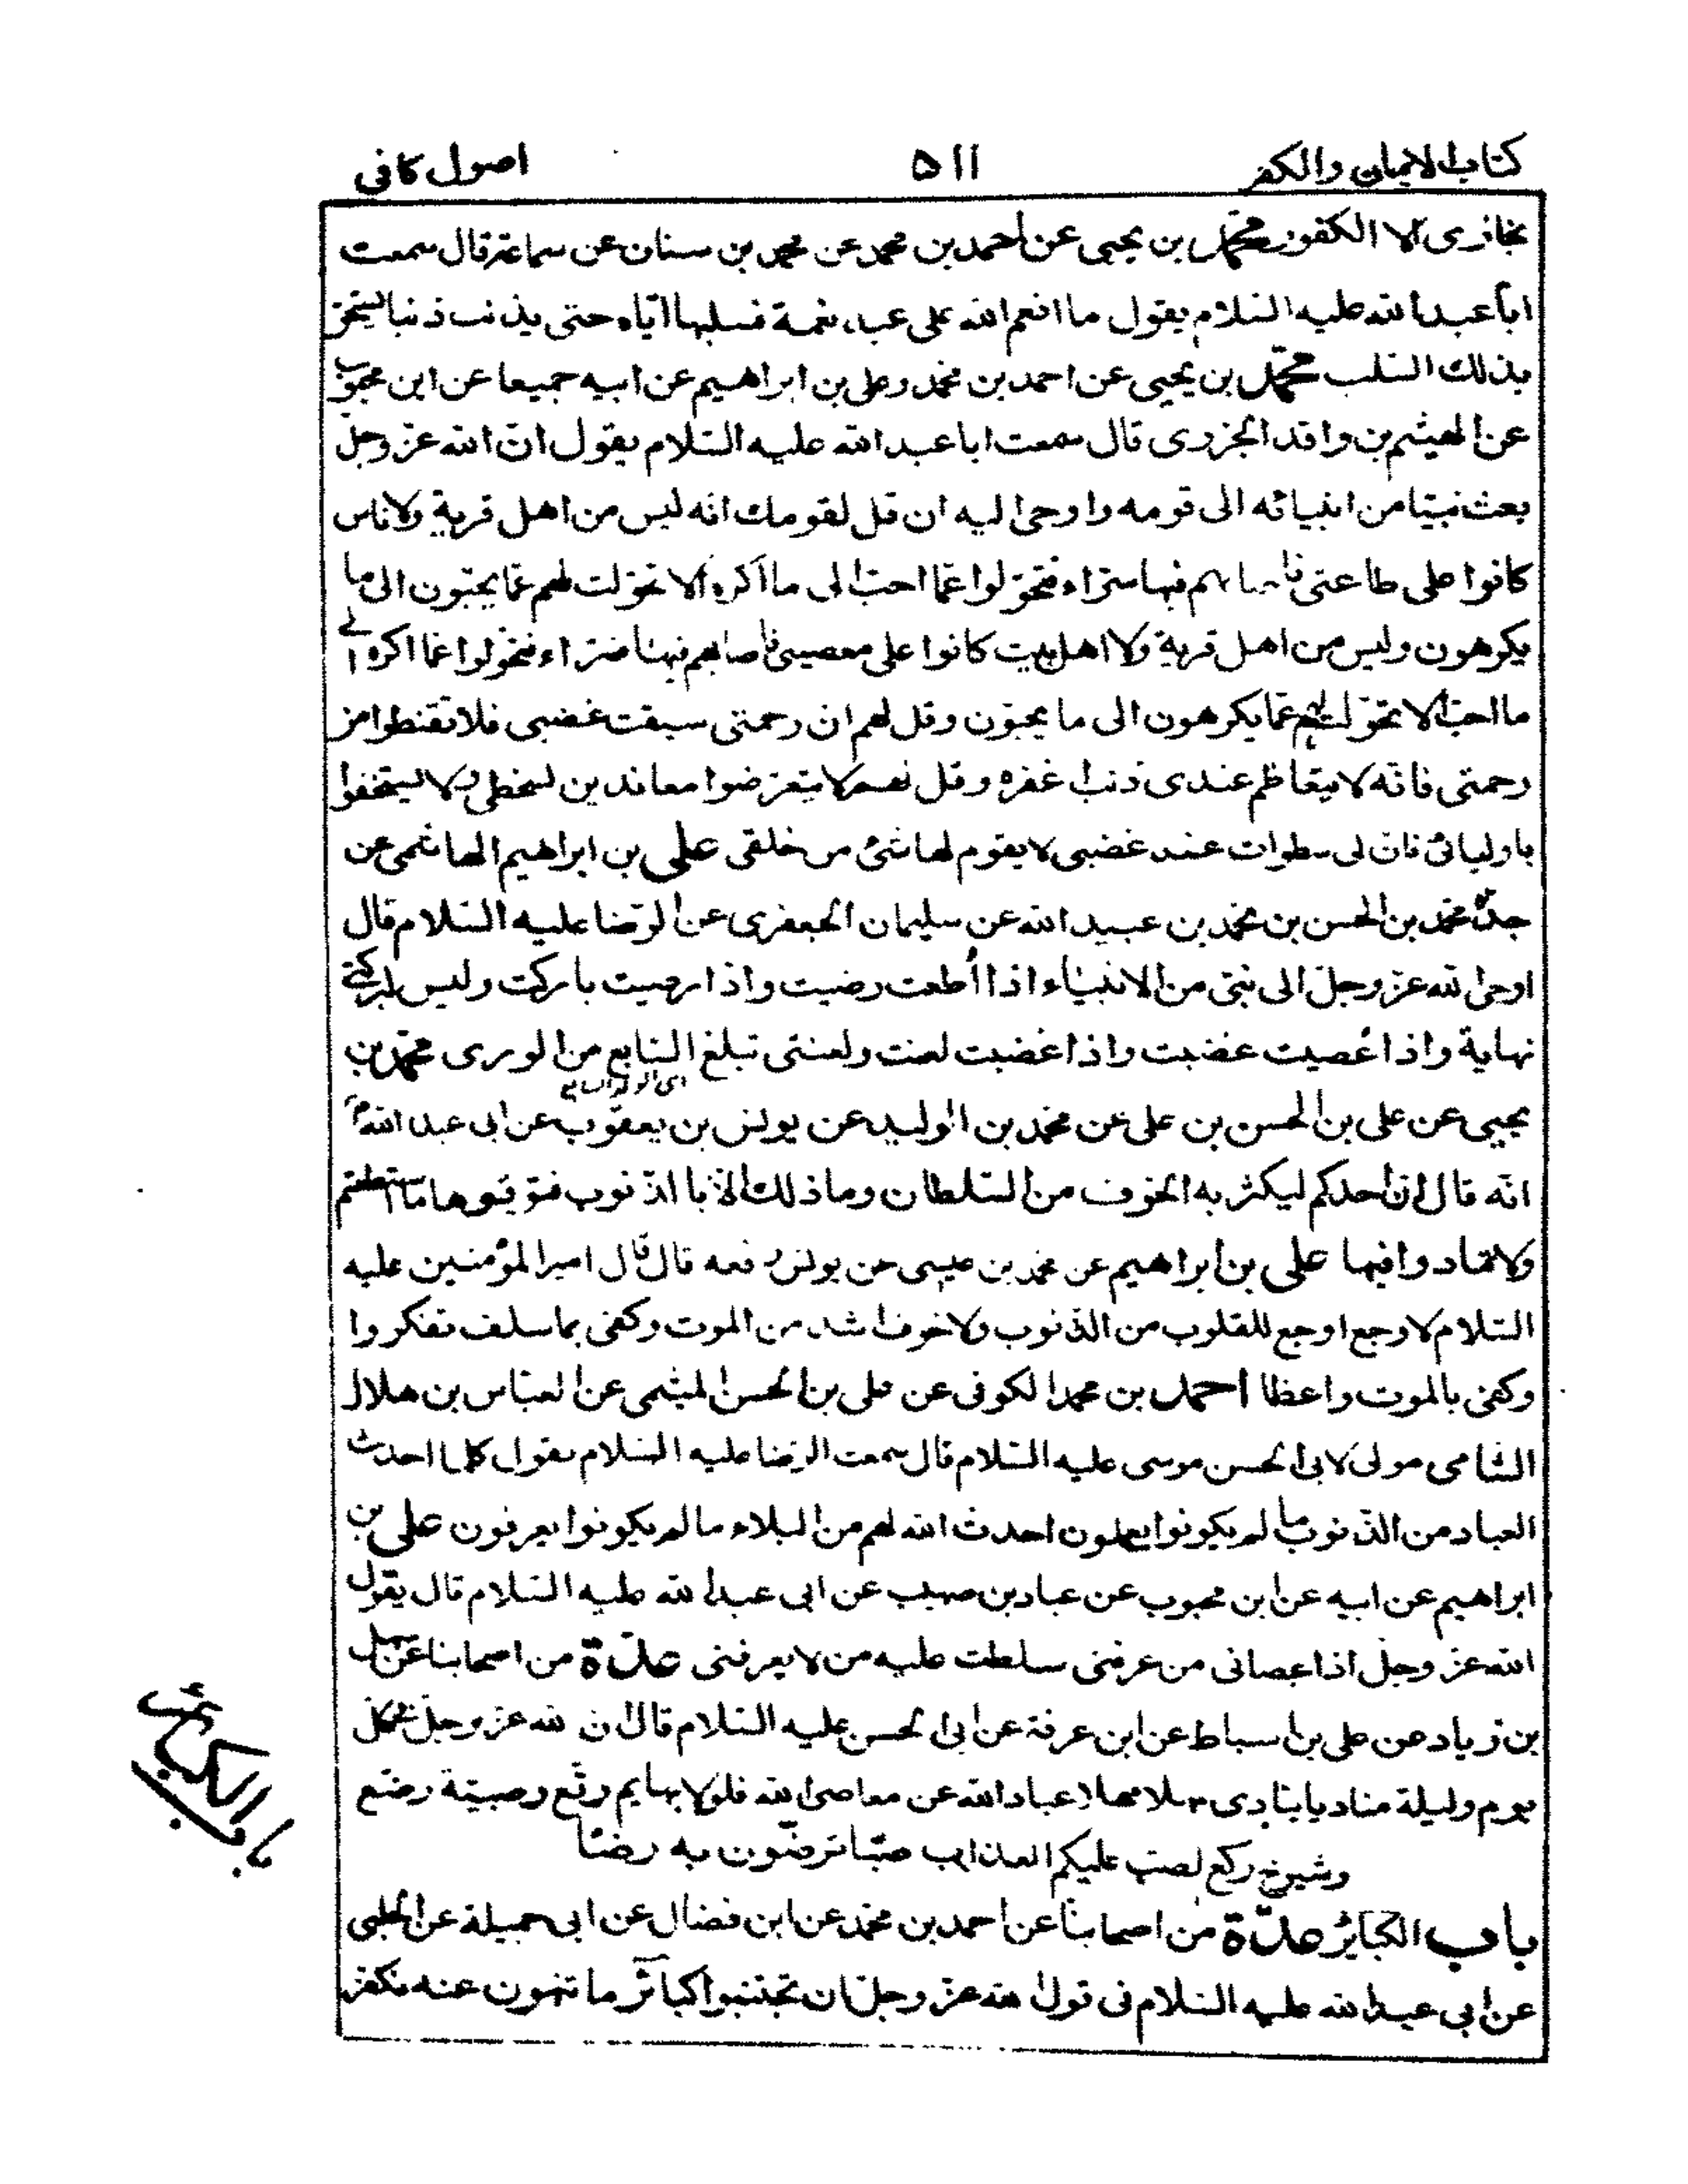 كتاب الايمان والكفر ۵۱۱ اصول كافى
نجازى الا الكفور محمد بن يحيى عن احمد بن محمد عن محمد بن سنان عن سماعة قال سمعت
ابا عبد الله عليه السّلام يقول ما انعم الله على عبد نعمة فسلبها ايّاه حتى يذنب ذنبا يستحق
بذلك السّلب محمد بن يحيى عن احمد بن محمد وعلى بن ابراهيم عن ابيه جميعا عن ابن محبوب
عن الهيثم بن واقد الجزرى قال سمعت ابا عبد الله عليه السّلام يقول انّ الله عزّ وجلّ
بعث نبيّا من انبيائه الى قومه واوحى اليه ان قل لقومك انّه ليس من اهل قرية ولا ناس
كانوا على طاعتى فاصابهم فيها سرّاء فتحوّلوا عمّا احبّ الى ما اكره الا تحوّلت لهم عمّا يحبّون الى ما
يكرهون وليس من اهل قرية ولا اهل بيت كانوا على معصيتى فاصابهم فيها ضرّاء فتحوّلوا عمّا اكره الى
ما احبّ الا تحوّلت لهم عمّا يكرهون الى ما يحبّون وقل لهم ان رحمتى سبقت غضبى فلا تقنطوا من
رحمتى فانّه لا يتعاظم عندى ذنب اغفره وقل لهم لا يتعرّضوا معاندين لسخطى ولا يستخفّوا
باوليائى فان لى سطوات عند غضبى لا يقوم لها شئ من خلقى على بن ابراهيم الهاشمى عن
جدّه محمد بن الحسن بن محمد بن عبيد الله عن سليمان الجعفرى عن الرّضا عليه السّلام قال
اوحى الله عزّ وجلّ الى نبىّ من الانبياء اذا أُطعت رضيت واذا رضيت باركت وليس لبركتى
نهاية واذا عُصيت غضبت واذا غضبت لعنت ولعنتى تبلغ السّابع من الورى محمّد بن
يحيى عن على بن الحسن بن على عن محمد بن الوليد عن يونس بن يعقوب عن ابى عبد الله ع
انّه قال ان احدكم ليكثر به الخوف من السّلطان وما ذلك الّا بالذّنوب فتوقّوها ما استطعتم
ولا تمادوا فيها على بن ابراهيم عن محمد بن عيسى عن يونس رفعه قال قال امير المؤمنين عليه
السّلام لا وجع اوجع للقلوب من الذّنوب ولا خوف اشد من الموت وكفى بما سلف تفكروا
وكفى بالموت واعظا احمد بن محمد الكوفى عن على بن الحسن الميثمى عن العبّاس بن هلال
الشامى مولى لابى الحسن موسى عليه السّلام قال سمعت الرّضا عليه السّلام يقول كلما احدث
العباد من الذّنوب ما لم يكونوا يعلمون احدث الله لهم من البلاء ما لم يكونوا يعرفون على بن
ابراهيم عن ابيه عن ابن محبوب عن عباد بن صهيب عن ابى عبد الله عليه السّلام قال يقول
الله عزّ وجلّ اذا عصانى من عرفنى سلطت عليه من لا يعرفنى عدّة من اصحابنا عن سهل
بن زياد عن على بن اسباط عن ابن عرفة عن ابى الحسن عليه السّلام قال ان لله عزّ وجلّ فى كل
يوم وليلة مناديا ينادى مهلا مهلا عباد الله عن معاصى الله فلولا بهايم رتّع وصبيّة رضّع
وشيوخ ركّع لصبّ عليكم العذاب صبّا ترضّون به رضّا
باب الكباير عدّة من اصحابنا عن احمد بن محمد عن ابن فضال عن ابى جميلة عن الحلبى
عن ابى عبد الله عليه السّلام فى قول الله عزّ وجلّ ان تجتنبوا كبائر ما تنهون عنه نكفر
باب الكبائر